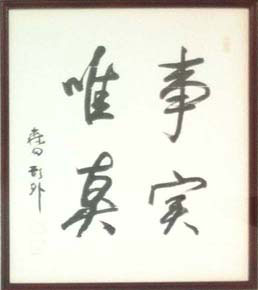 事実
唯真
森田形外